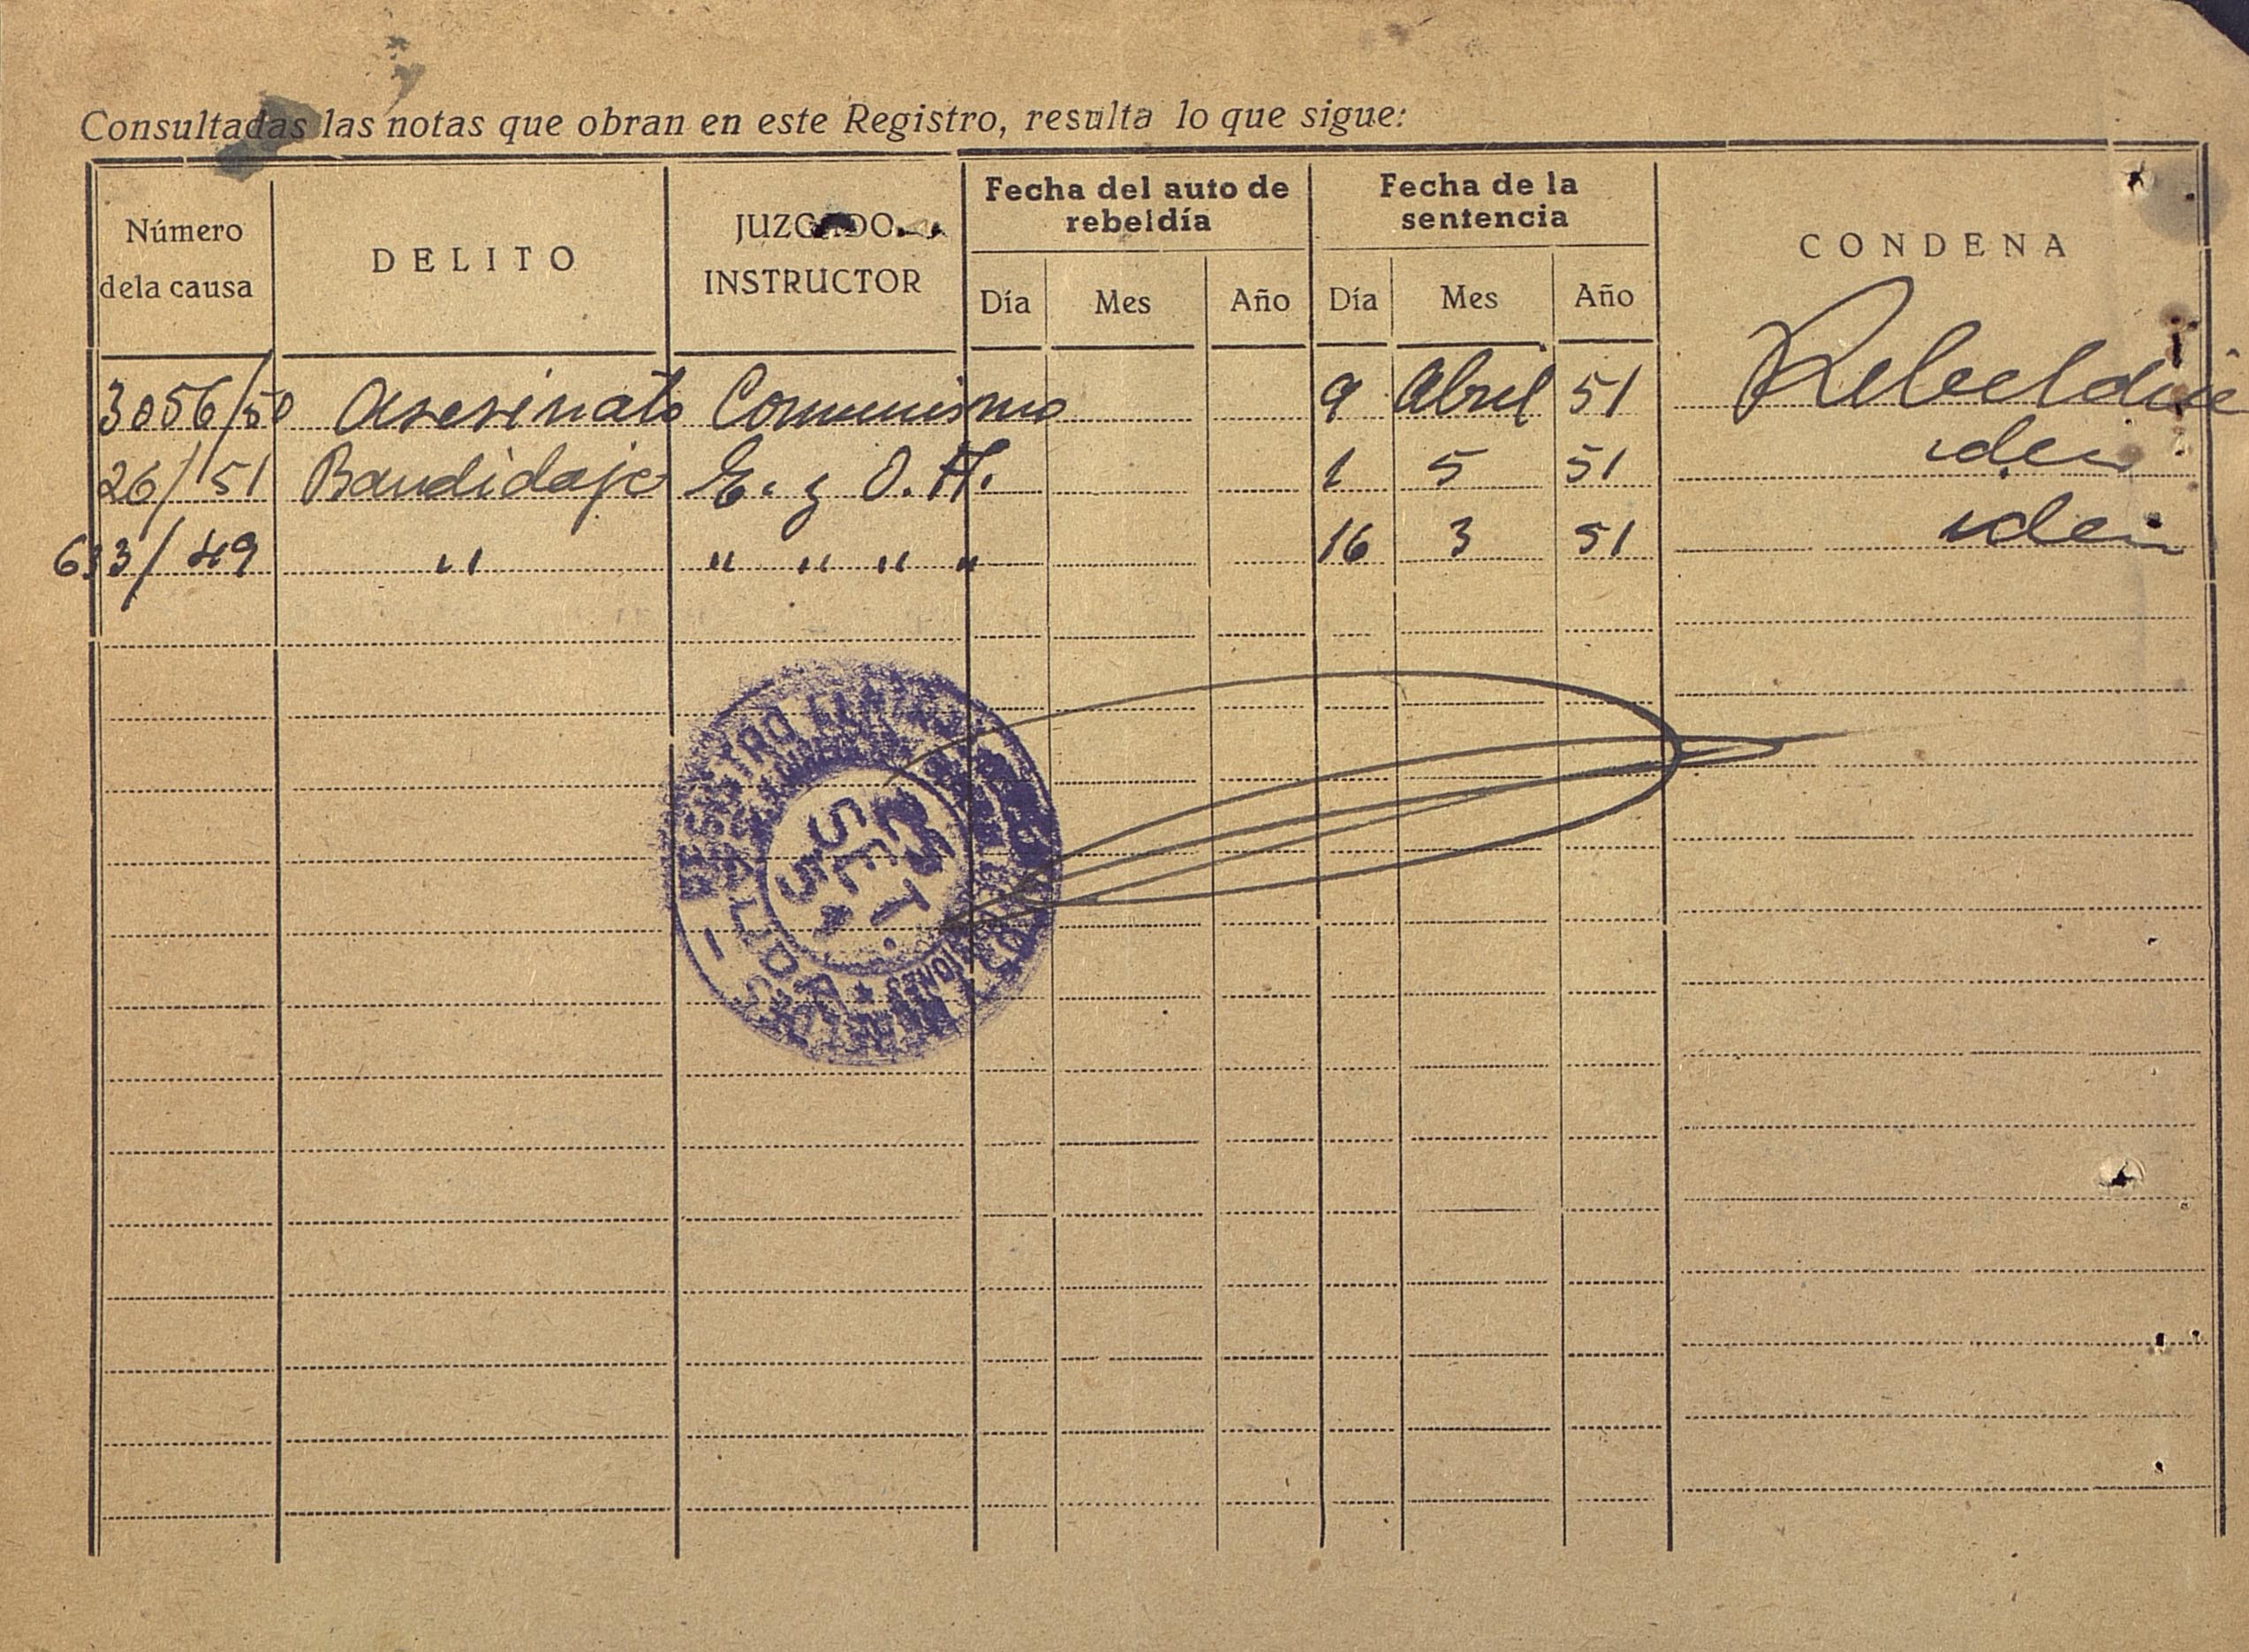 Consultadas las notas que obran en este Registro, resulta lo que sigue:
Número dela causa
DELITO
JUZGADO INSTRUCTOR
Fecha del auto de rebeldía
Fecha de la sentencia
CONDENA
Día Mes Año Día Mes Año
3056/50 Asesinato Comunismo 9 Abril 51 Rebeldia
26/51 Bandidaje E. y O. A. 1 5 51 iden
633/49 " " " " " 16 3 51 iden
REGISTRO